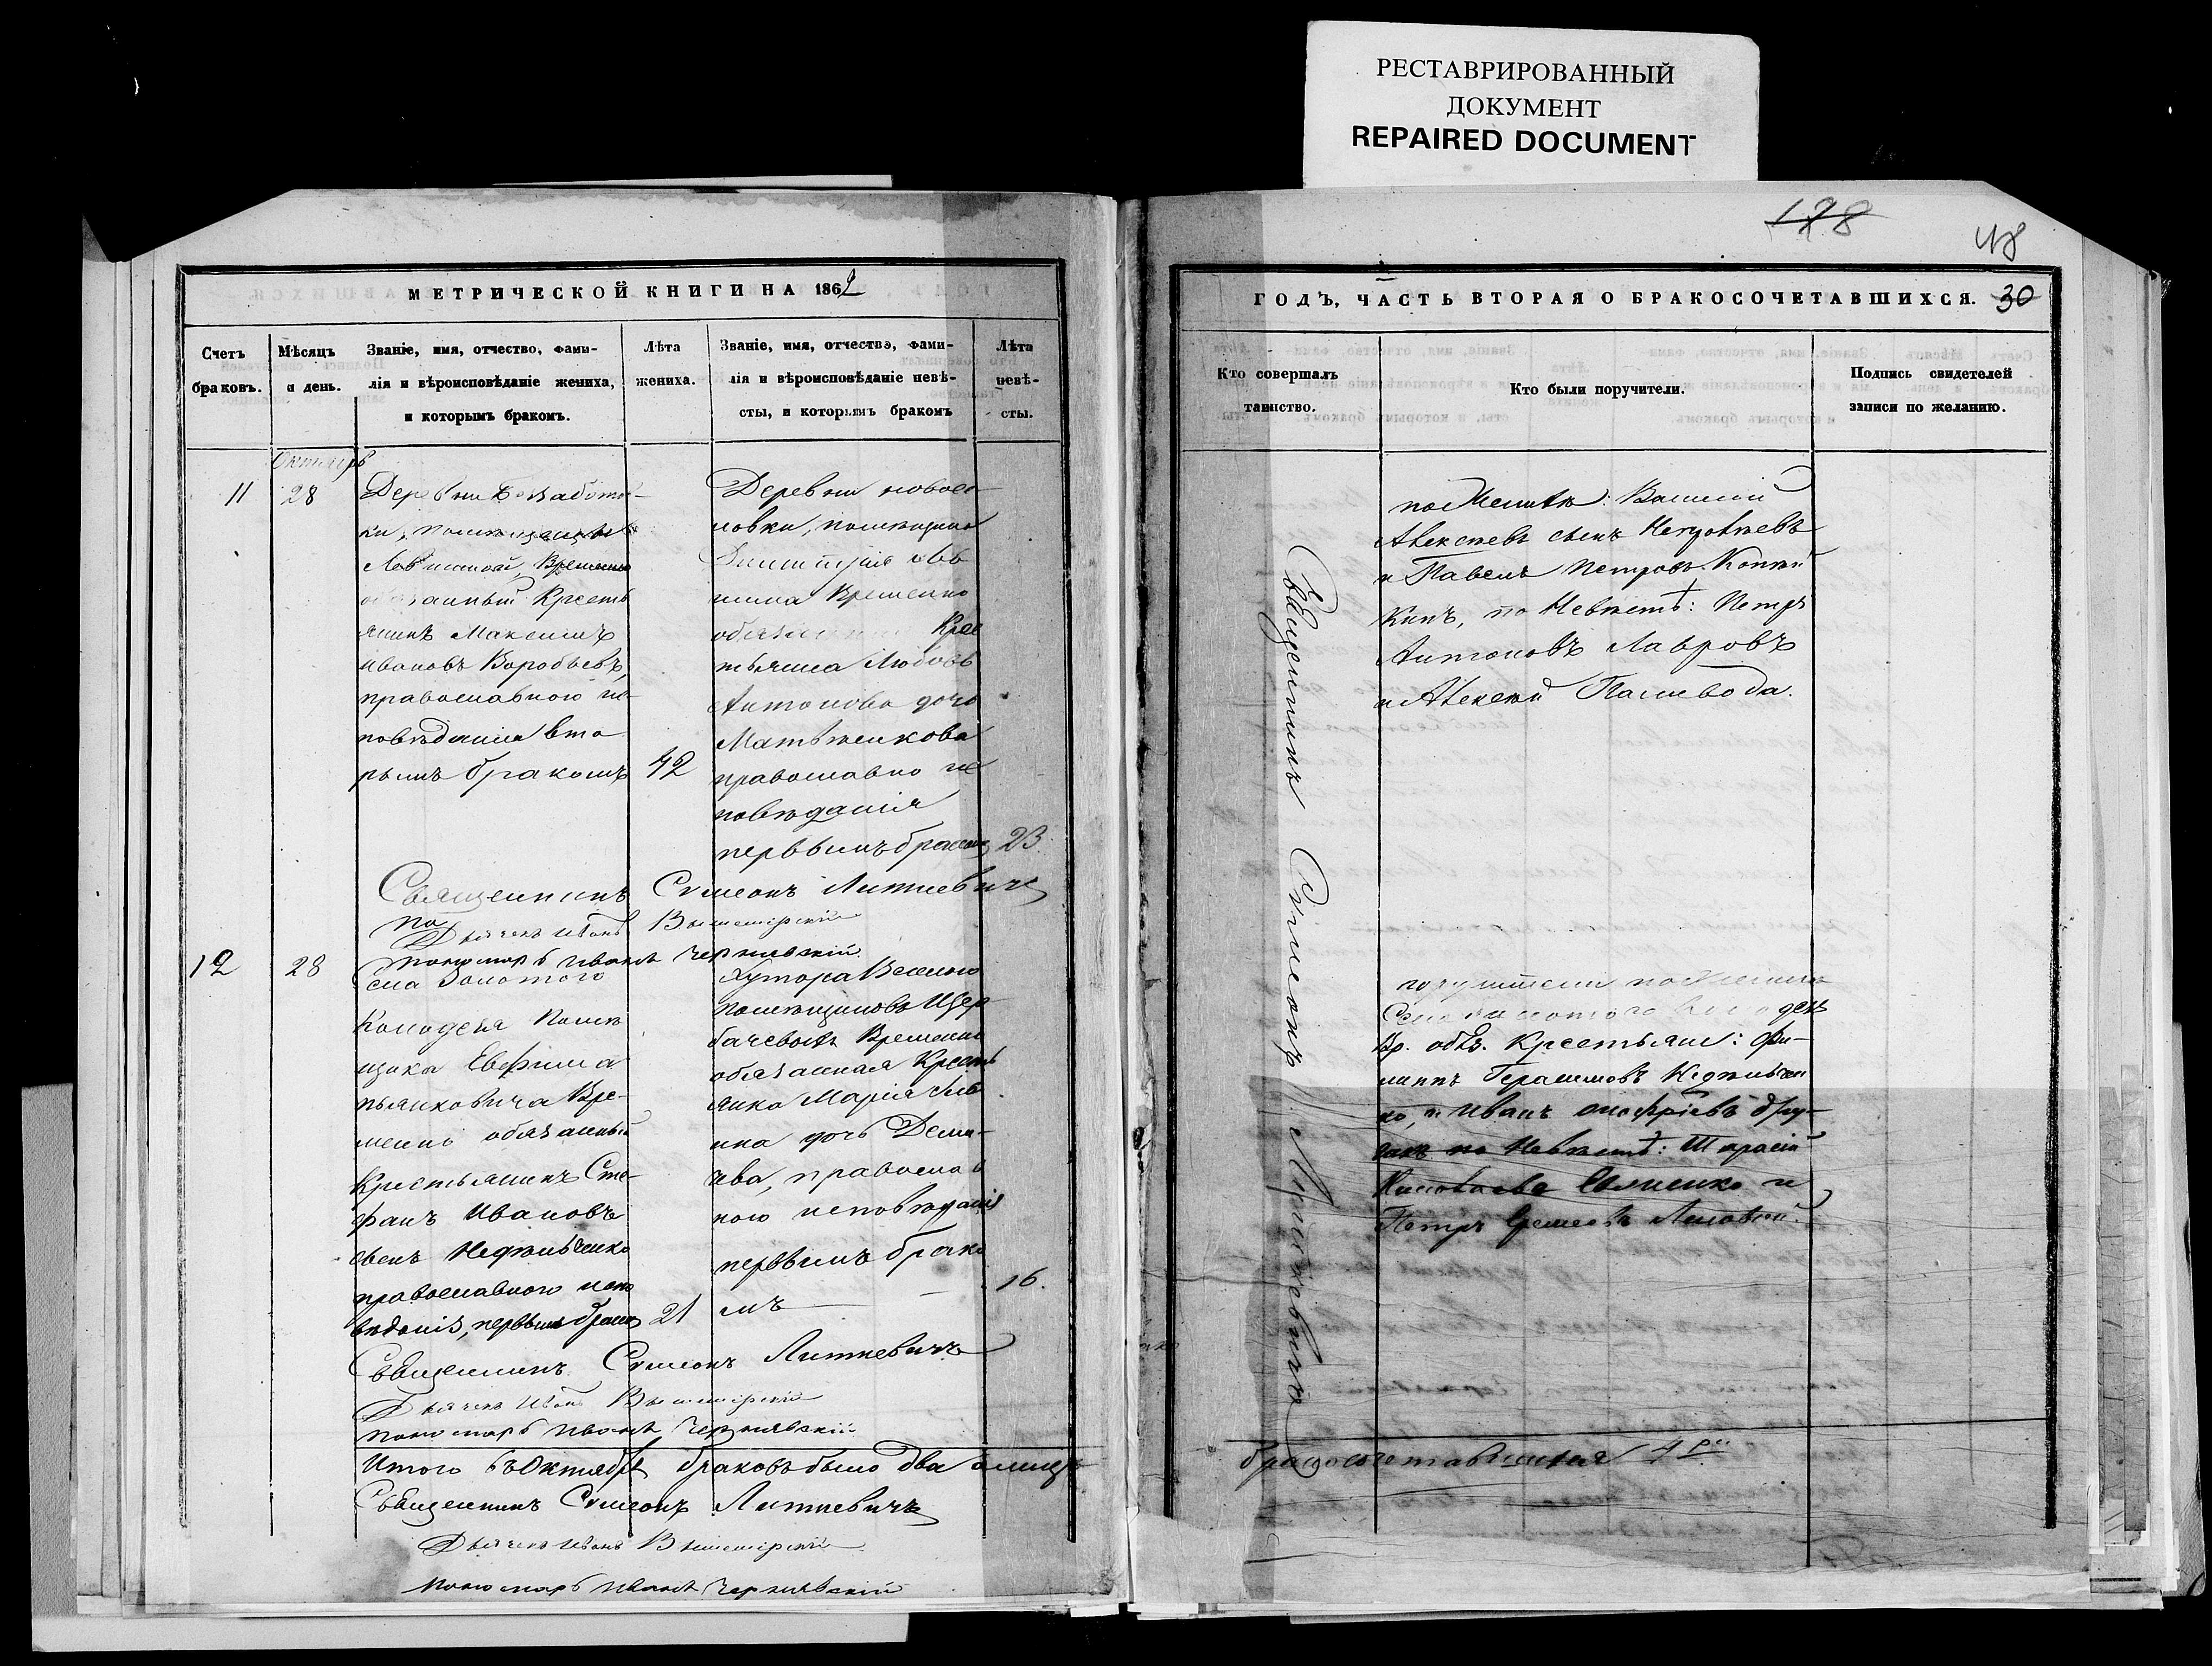 РЕСТАВРИРОВАННЫЙ
ДОКУМЕНТ
REPAIRED DOCUMENT
МЕТРИЧЕСКОЙ КНИГИ НА 1862
Счетъ
браковъ.
Мѣсяцъ
и день.
Званіе, имя, отчество, фами-
лія и вѣроисповѣданіе жениха,
и которымъ бракомъ.
Лѣта
жениха.
Званіе, имя, отчество, фами-
лія и вѣроисповѣданіе невѣ-
сты, и которымъ бракомъ
Лѣта
невѣ-
сты.
Октябрь
11
28
Деревни Беззаботов-
ки, помѣщицы
Временно
обязанный Кресть
янинъ Максимъ
Ивановъ Воробьевъ,
православного ис-
повѣданія вто
рымъ бракомъ
42
Деревни новосе-
ловки, помѣщика
Димитрія
Временно
обязанная Крес
тьянка Любовь
Антонова дочь
Матвѣенкова
православно ис
повѣданія
первымъ бракомъ
23.
Священникъ Сѵмеонъ Литкевичъ
Дьячекъ Иванъ Вышемірскій
Пономарь Иванъ Чернявскій.
12
28
Села Золотого
Колодезя Помѣ
щика Евфима
Временно обязанный
Крестьянинъ Сте-
фанъ Ивановъ
сынъ Недѣльченко
православного испо
вѣданія, первымъ бракомъ
21
Хутора Веселого
помѣщиковъ Щер-
бачевыхъ Временно
обязанная Кресть
янка Марія
дочь Деми-
чева, правосла в
ного исповѣданія
первымъ брако
мъ
16.
Священникъ Сѵмеонъ Литкевичъ
Дьячекъ Иванъ Вышемірскій
Пономарь Иванъ Чернявскій
Итого въ Октябрѣ браковъ было два а лицъ
Священникъ Сѵмеонъ Литкевичъ
Дьячекъ Иванъ Вышемірскій
Пономарь Иванъ Чернявскій
128
48
ГОДЪ, ЧАСТЬ ВТОРАЯ О БРАКОСОЧЕТАВШИХСЯ.
30
Кто совершалъ
таинство.
Кто были поручители.
Подпись свидетелей
записи по желанію.
Священникъ Сѵмеонъ Литкевичъ
по Женихѣ: Василій
Алексѣевъ сынъ
и Павелъ Петровъ
по Невѣстѣ: Петръ
Антоновъ Лавровъ
и Алексѣй Паливода.
поручители по Женихѣ
Села Золотого Колодезя
Вр. обяз. Крестьяне: Фи-
липпъ Герасимовъ Недѣльчен
ко, и Иванъ Онофріевъ
по Невѣстѣ: Тарасій
и
Петръ
бракосочетавшихся 4